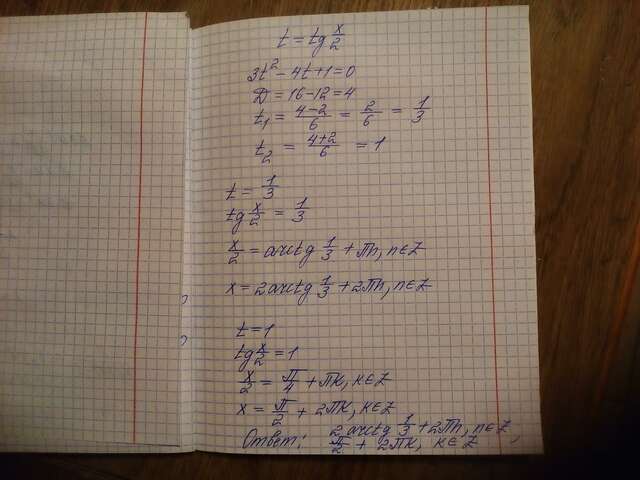 t = tg x/2
3t² - 4t + 1 = 0
D = 16 - 12 = 4
t₁ = (4-2)/6 = 2/6 = 1/3
t₂ = (4+2)/6 = 1
t = 1/3
tg x/2 = 1/3
x/2 = arctg 1/3 + πn, n∈Z
x = 2arctg 1/3 + 2πn, n∈Z
t = 1
tg x/2 = 1
x/2 = π/4 + πk, k∈Z
x = π/2 + 2πk, k∈Z
Ответ: 2arctg 1/3 + 2πn, n∈Z,
π/2 + 2πk, k∈Z